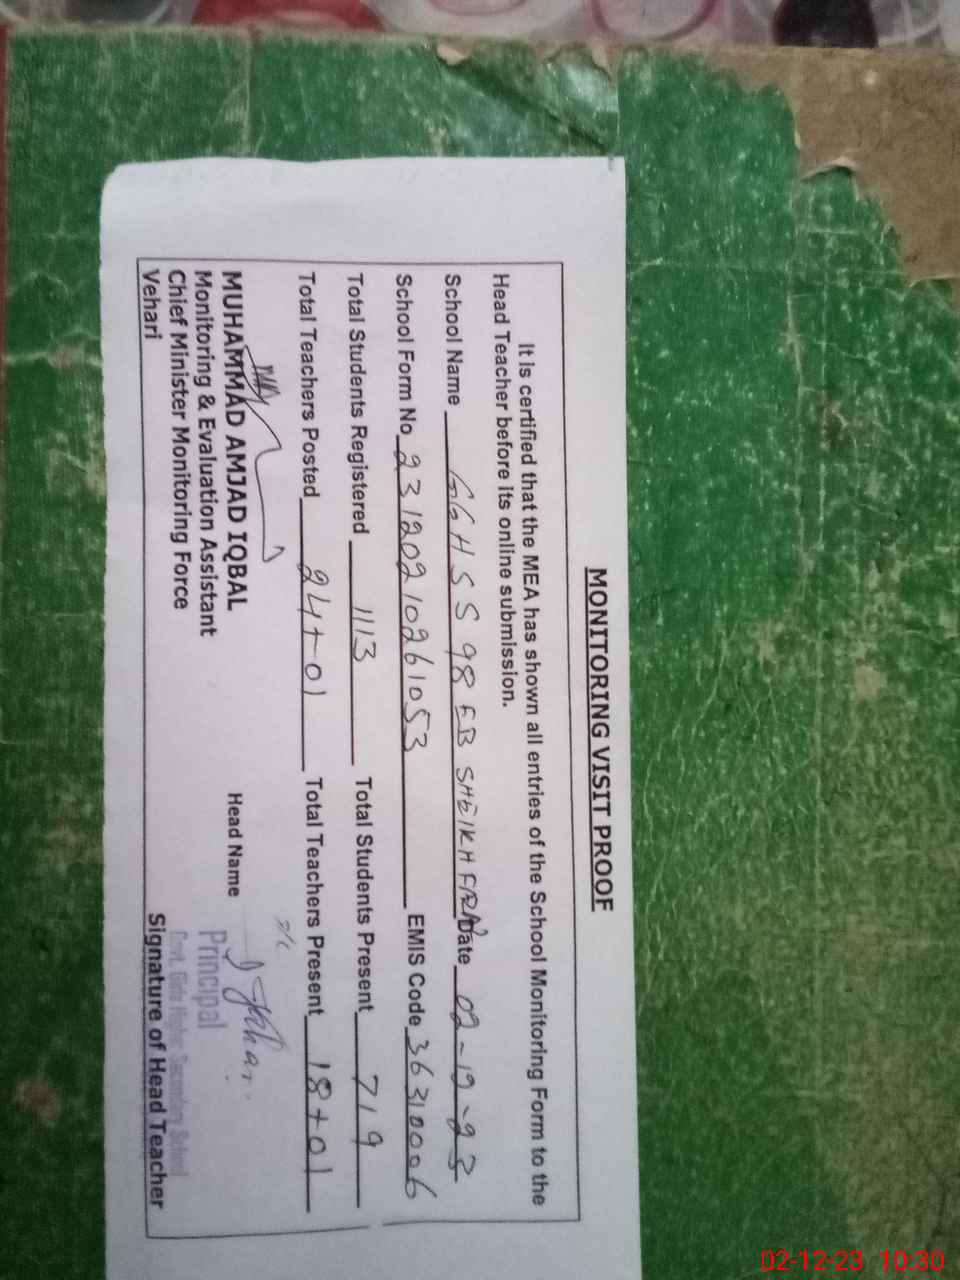 MONITORING VISIT PROOF
It is certified that the MEA has shown all entries of the School Monitoring Form to the
Head Teacher before its online submission.
School Name GGHSS 98 EB SHEIKH Date 02-12-23
School Form No 23120210261053 EMIS Code 36310006
Total Students Registered 1113 Total Students Present 719
Total Teachers Posted 24+01 Total Teachers Present 18+01
MUHAMMAD AMJAD IQBAL Head Name
Monitoring & Evaluation Assistant Principal
Chief Minister Monitoring Force Govt. Girls Higher Secondary School
Vehari Signature of Head Teacher
02-12-23 10:30